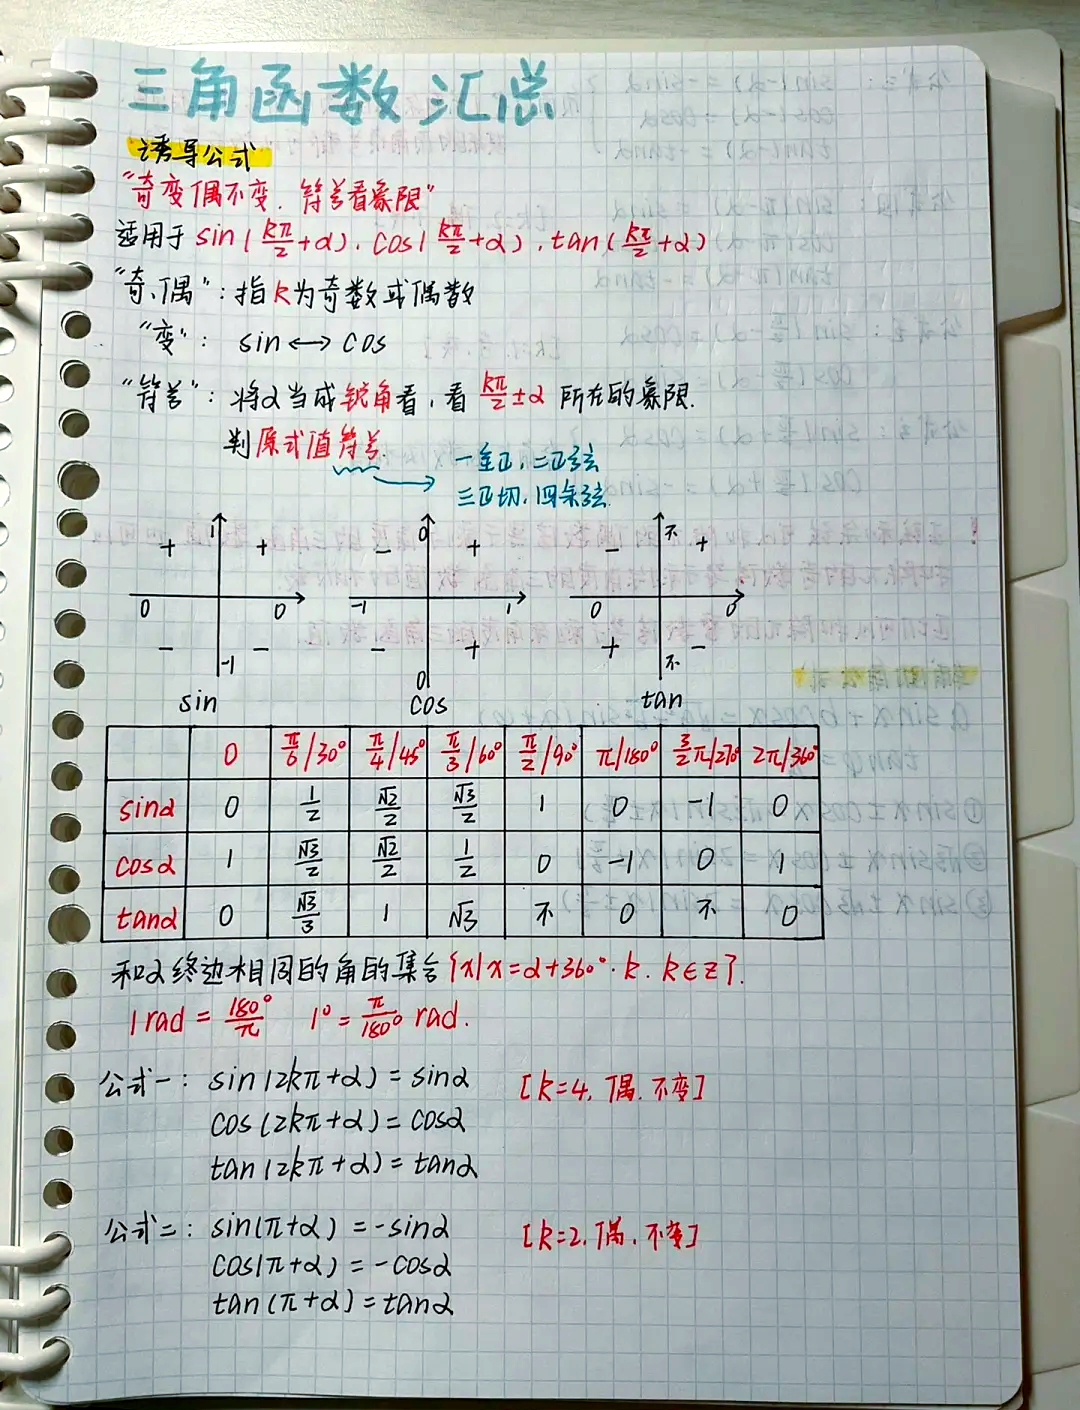 三角函数汇总
诱导公式
"奇变偶不变，符号看象限"
适用于 sin(kπ/2+α)、cos(kπ/2+α)、tan(kπ/2+α)
"奇、偶"：指k为奇数或偶数
"变"： sin⟷cos
"符号"：将α当成锐角看，看 kπ/2±α 所在的象限.
判原式值符号.
一全正，二正弦
三正切，四余弦
1 0 不
+ + − + − +
0 0 -1 1 0 0
− − − + + −
-1 0 不
sin cos tan
0 π/6/30° π/4/45° π/3/60° π/2/90° π/180° 3/2π/270° 2π/360°
sinα 0 1/2 √2/2 √3/2 1 0 -1 0
cosα 1 √3/2 √2/2 1/2 0 -1 0 1
tanα 0 √3/3 1 √3 不 0 不 0
和α终边相同的角的集合{x|x=α+360°·k，k∈z}.
1 rad = 180°/π 1°=π/180° rad.
公式一： sin(2kπ+α)=sinα [k=4，偶，不变]
cos(2kπ+α)=cosα
tan(2kπ+α)=tanα
公式二： sin(π+α)=-sinα [k=2，偶，不变]
cos(π+α)=-cosα
tan(π+α)=tanα